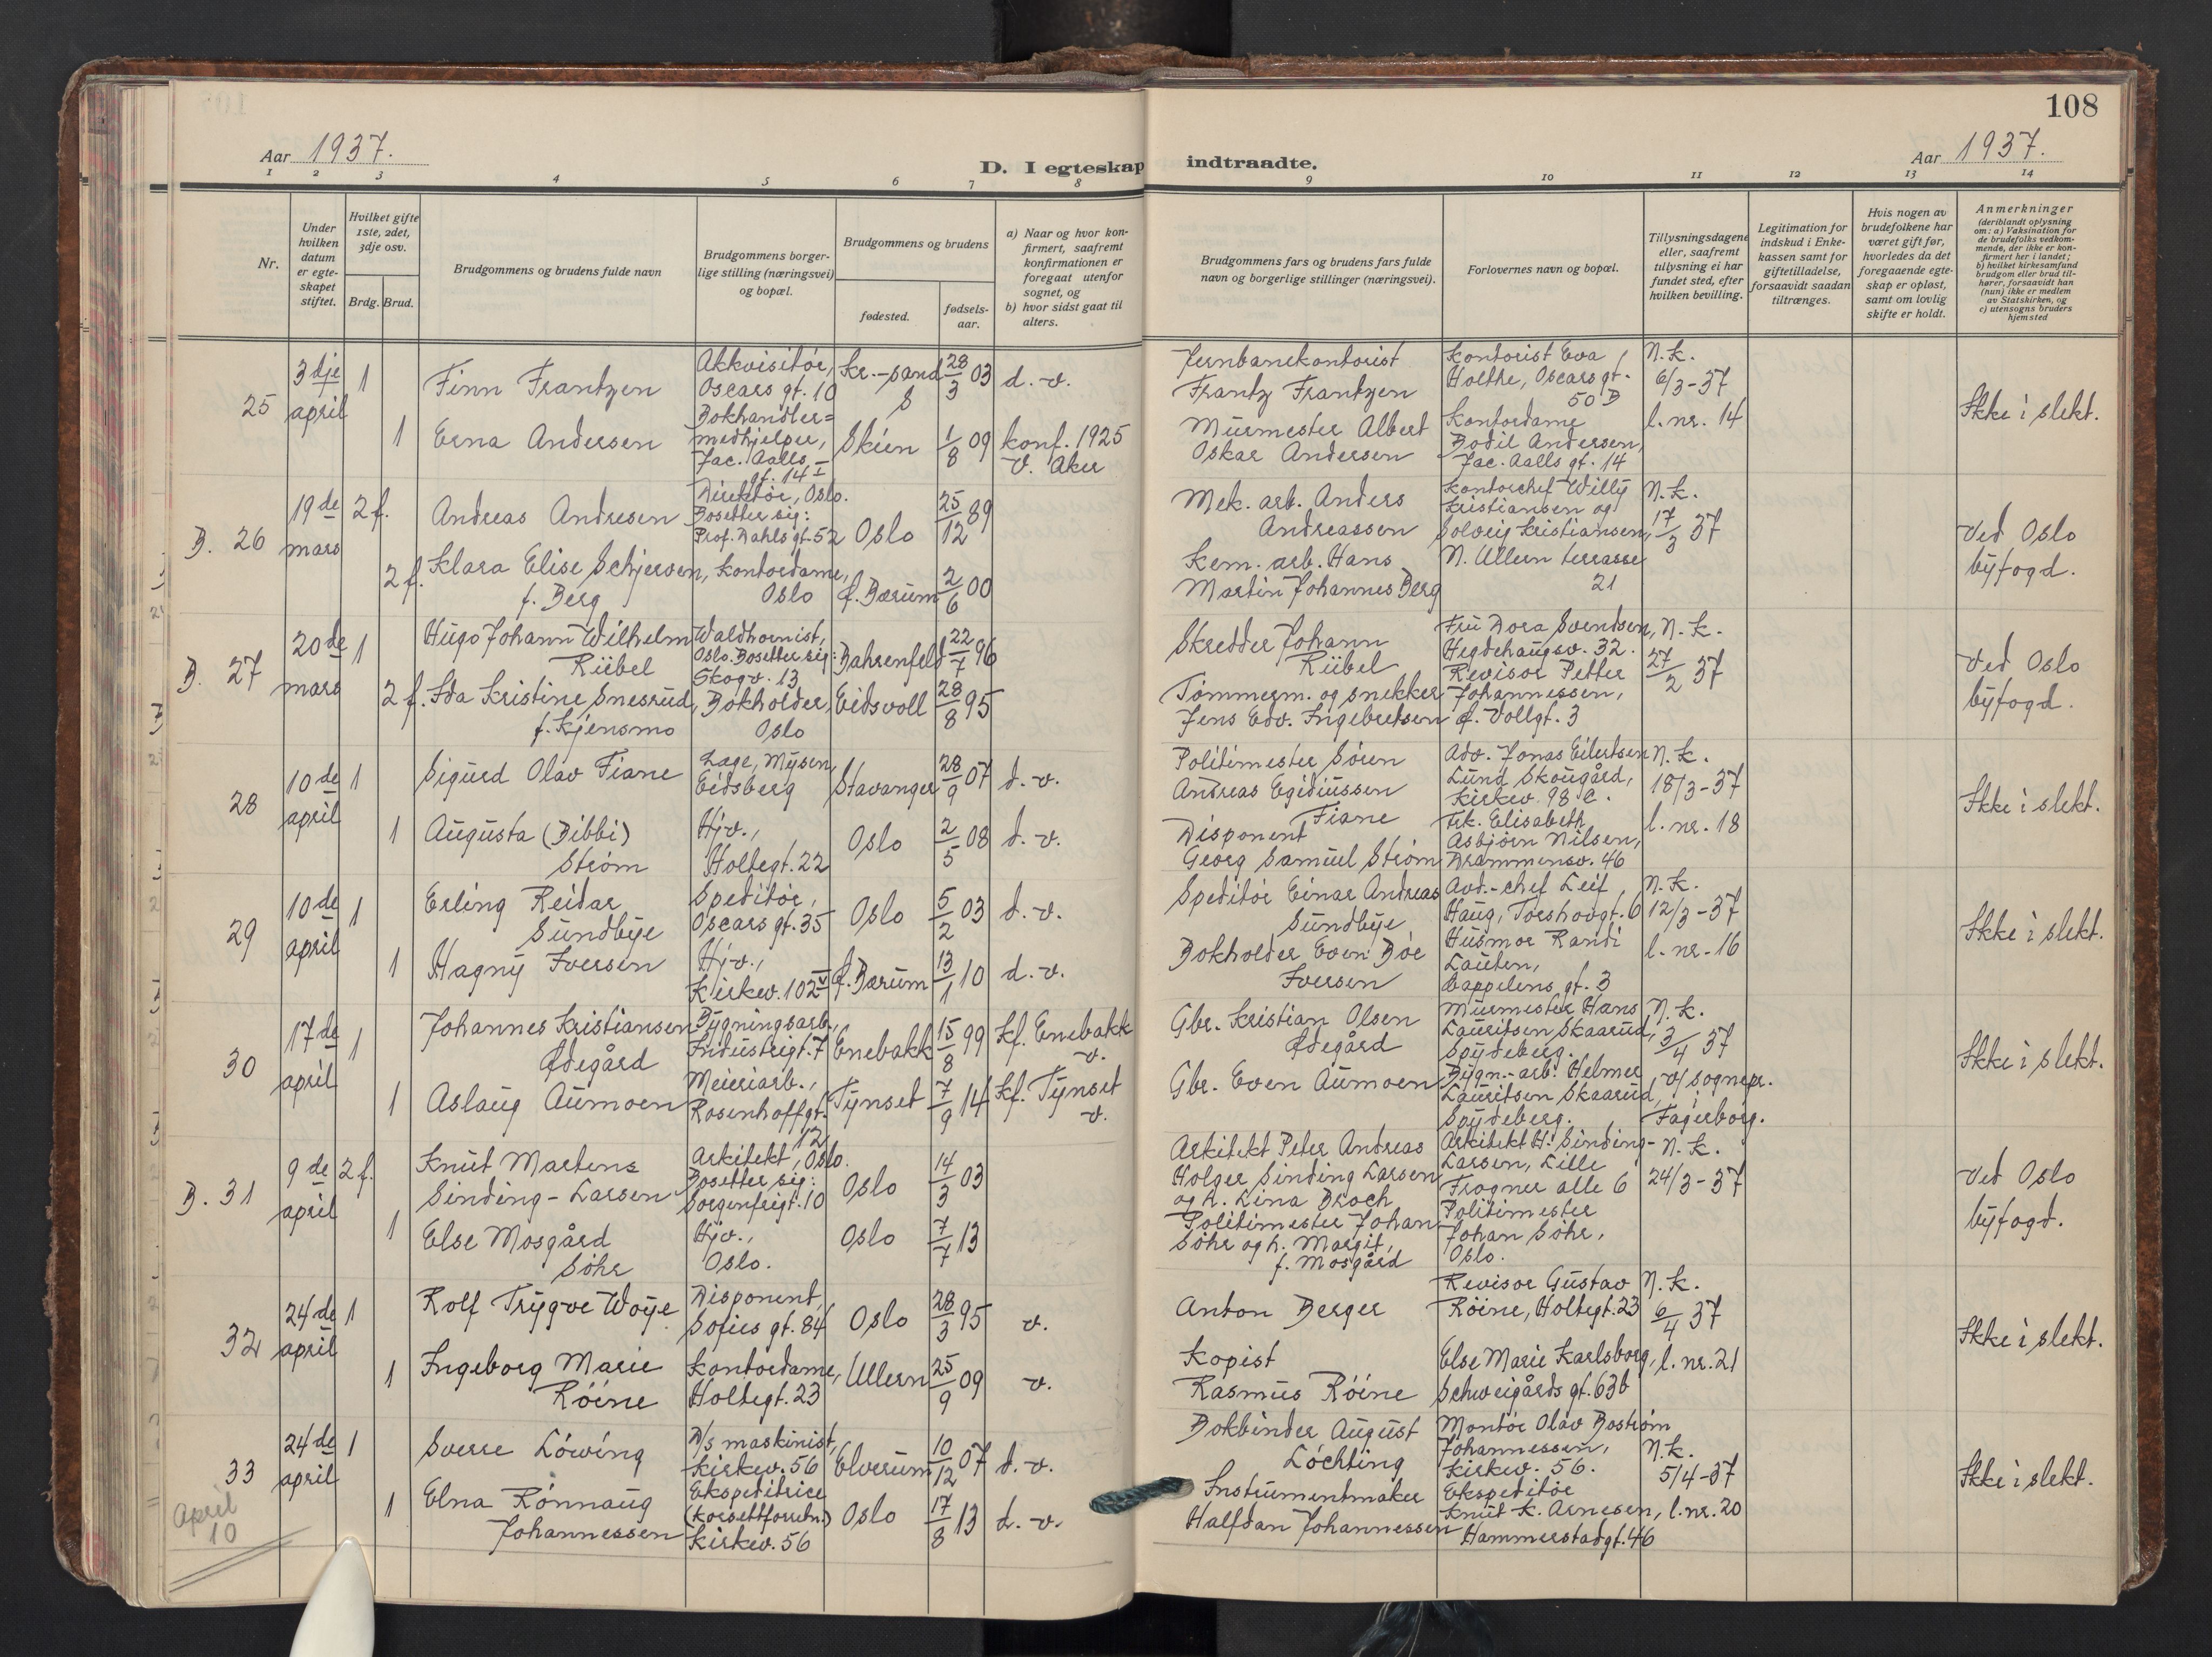 108
Aar 1937.
D. I egteskap indtraadte.
Aar 1937.
1 2 3 4 5 6 7 8 9 10 11 12 13 14
Nr.
Under hvilken datum er egteskapet stiftet.
Hvilket gifte 1ste, 2det, 3dje osv.
Brdg. Brud.
Brudgommens og brudens fulde navn
Brudgommens borgerlige stilling (næringsvei) og bopæl.
Brudgommens og brudens
fødested.
fødselsaar.
a) Naar og hvor konfirmert, saafremt konfirmationen er foregaat utenfor sognet, og
b) hvor sidst gaat til alters.
Brudgommens fars og brudens fars fulde navn og borgerlige stillinger (næringsvei).
Forlovernes navn og bopæl.
Tillysningsdagene eller, saafremt tillysning ei har fundet sted, efter hvilken bevilling.
Legitimation for indskud i Enkekassen samt for giftetilladelse, forsaavidt saadan tiltrænges.
Hvis nogen av brudefolkene har været gift før, hvorledes da det foregaaende egteskap er opløst, samt om lovlig skifte er holdt.
Anmerkninger
(deriblandt oplysning om: a) Vaksination for de brudefolks vedkommende, der ikke er konfirmert her i landet; b) hvilket kirkesamfund brudgom eller brud tilhører, forsaavidt han (hun) ikke er medlem av Statskirken, og c) utensogns bruders hjemsted
25
3dje april
1
Finn Frantzen
Akkvisitør, Oscars gt. 10
Kr.-sand S
28/3 03
d. v.
Jernbanekontorist Frantz Frantzen
Kontorist Eva Holthe, Oscars gt. 50 B
N.K. 6/3-37 l. nr. 14
Ikke i slekt.
1
Erna Andersen
Bokhandler=medhjelper, Jac. Aalls gt. 14 I
Skien
1/8 09
konf. 1925 V. Aker
Murmester Albert Oskar Andersen
Kontordame Bodil Andersen, Jac. Aalls gt. 14
B. 26
19de mars
2 f.
Andreas Andresen
Direktør, Oslo. Bosetter sig: Prof. Dahls gt. 52
Oslo
25/12 89
Mek. arb. Anders Andreassen
Kontorchef Willy Kristiansen og Solveig Kristiansen, N. Ullern terrasse 21
N.K. 17/3 37
Ved Oslo byfogd.
2 f.
Klara Elise Schjerven, f. Berg
Kontordame, Oslo
Ø. Bærum
2/6 00
Kem. arb. Hans Martin Johannes Berg
B. 27
20de mars
1
Hugo Johann Wilhelm Rübel
Waldhornist, Oslo. Bosetter sig: Skogv. 13
Bahrenfeld
22/7 96
Skredder Johann Rübel
Fru Dora Svendsen, Hegdehaugsv. 32.
N.K. 27/2 37
Ved Oslo byfogd.
2 f.
Ida Kristine Snesrud, f. Kjensmo
Bokholder, Oslo
Eidsvoll
28/8 95
Tømmerm. og snekker Jens Edv. Ingebretsen
Revisor Petter Johannessen, Ø. Vollgt. 3
28
10de april
1
Sigurd Olav Fiane
Læge, Mysen, Eidsberg
Stavanger
28/9 07
d. v.
Politimester Søren Andreas Egidiussen Fiane
Adv. Jonas Eilertsen Lund Skougård, Kirkev. 98 C.
N.K. 18/3-37 l. nr. 18
Ikke i slekt.
1
Augusta (Bibbi) Strøm
Hjv., Holtegt. 22
Oslo
2/5 08
d. v.
Disponent Georg Samuel Strøm
Frk. Elisabeth Asbjørn Nilsen, Drammensv. 46
29
10de april
1
Erling Reidar Sundbye
Speditør, Oscars gt. 35
Oslo
5/2 03
d. v.
Speditør Einar Andreas Sundbye
Avd.-chef Leif Haug, Torshovgt. 6
N.K. 12/3-37 l. nr. 16
Ikke i slekt.
1
Hagny Iversen
Hjv., Kirkev. 102 V
Ø. Bærum
13/1 10
d. v.
Bokholder Even Bøe Iversen
Husmor Randi Lauten, Cappelens gt. 3
30
17de april
1
Johannes Kristiansen Ødegård
Bygningsarb., Industrigt. 7
Enebakk
15/8 99
Kf. Enebakk v.
Gbr. Kristian Olsen Ødegård
Murmester Hans Lauritsen Skaarud, Spydeberg.
N.K. 3/4 37 v/ sognepr. i Fagerborg.
Ikke i slekt.
1
Aslaug Aumoen
Meieriarb., Rosenhoffgt. 12
Tynset
7/9 14
Kf. Tynset v.
Gbr. Even Aumoen
Bygn.-arb. Helmer Lauritsen Skaarud, Spydeberg.
B. 31
9de april
2 f.
Knut Martens Sinding-Larsen
Arkitekt, Oslo. Bosetter sig: Sorgenfrigt. 10
Oslo
14/3 03
Arkitekt Peter Andreas Holger Sinding Larsen og h. Lina Broch
Arkitekt H. Sinding-Larsen, Lille Frogner alle 6
N.K. 24/3-37
Ved Oslo byfogd.
1
Else Mosgård Söhr
Hjv., Oslo.
Oslo
7/7 13
Politimester Johan Söhr og h. Margit, f. Mosgård
Politimester Johan Söhr, Oslo.
32
24de april
1
Rolf Trygve Woye
Disponent, Sofies gt. 84
Oslo
28/3 95
v.
Anton Berger
Revisor Gustav Röine, Holtegt. 23
N.K. 6/4 37 l. nr. 21
Ikke i slekt.
1
Ingeborg Marie Röine
Kontordame, Holtegt. 23
Ullern
25/9 09
v.
Kopist Rasmus Röine
Else Marie Karlsborg, Schweigårds gt. 63b
33
24de april
1
Sverre Löwing
D/s maskinist, Kirkev. 56
Elverum
10/12 07
d. v.
Bokbinder August Löchting
Montør Olav Boström Johannessen, Kirkev. 56.
N.K. 5/4-37 l. nr. 20
Ikke i slekt.
1
Elna Rönnaug Johannessen
Ekspeditrice (Korsettforretn.) Kirkev. 56
Oslo
17/8 13
d. v.
Instrumentmaker Halfdan Johannessen
Ekspeditør Knut K. Arnesen, Hammerstadgt. 46
April 10